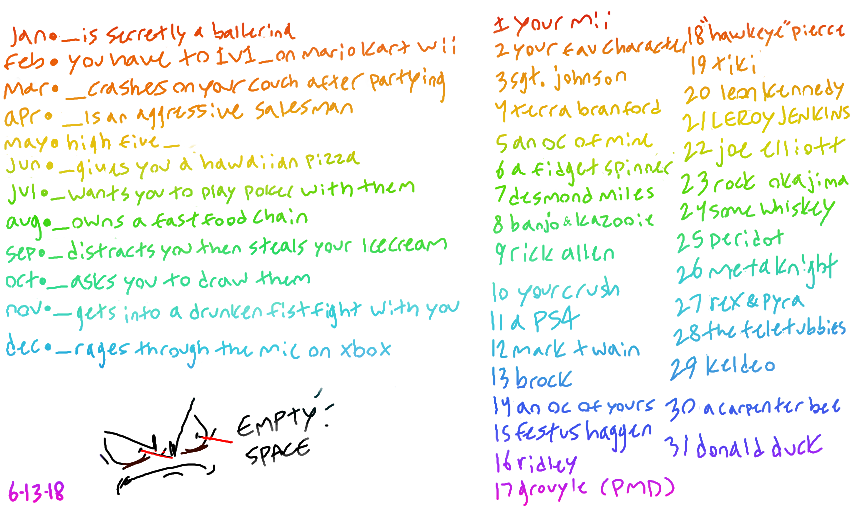 jan•_is secretly a ballerina
feb• you have to 1v1_on mario kart wii
mar•_crashes on your couch after partying
apr•_is an aggressive salesman
may• high five_
jun•_gives you a hawaiian pizza
jul•_wants you to play poker with them
aug•_owns a fast food chain
sep•_distracts you then steals your icecream
oct•_asks you to draw them
nov•_gets into a drunken fist fight with you
dec•_rages through the mic on xbox
EMPTY!
SPACE
6-13-18
1 your mii
2 your fav character
3 sgt. johnson
4 terra branford
5 an oc of mine
6 a fidget spinner
7 desmond miles
8 banjo & kazooie
9 rick allen
10 your crush
11 a PS4
12 mark twain
13 brock
14 an oc of yours
15 festus haggen
16 ridley
17 grovyle (PMD)
18 "hawkeye" pierce
19 tiki
20 leon kennedy
21 LEROY JENKINS
22 joe elliott
23 rock okajima
24 some whiskey
25 peridot
26 metaknight
27 rex & pyra
28 the teletubbies
29 keldeo
30 a carpenter bee
31 donald duck